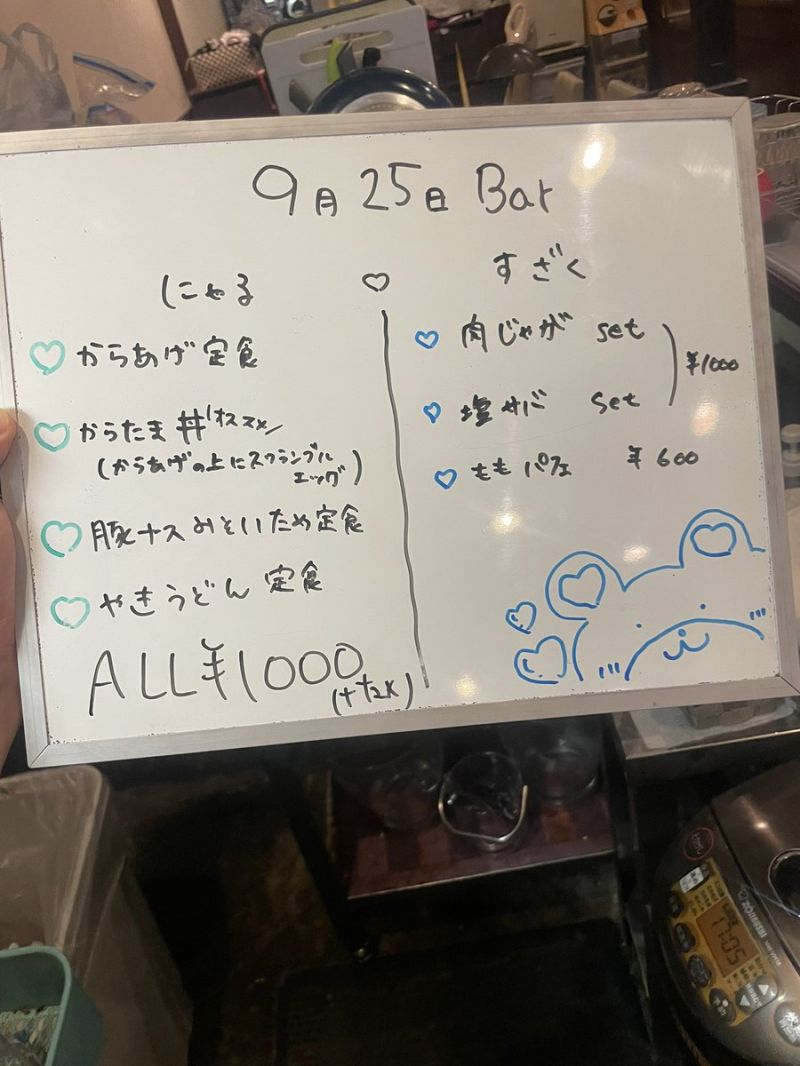 9月25日 Bar
にゃる
からあげ定食
からたま丼 \オススメ/
(からあげの上にスクランブル
エッグ)
豚ナスみそいため定食
やきうどん 定食
ALL¥1000
すざく
肉じゃが set
塩サバ set
¥1000
ももパフェ ¥600
ZOJIRUSHI
17:05